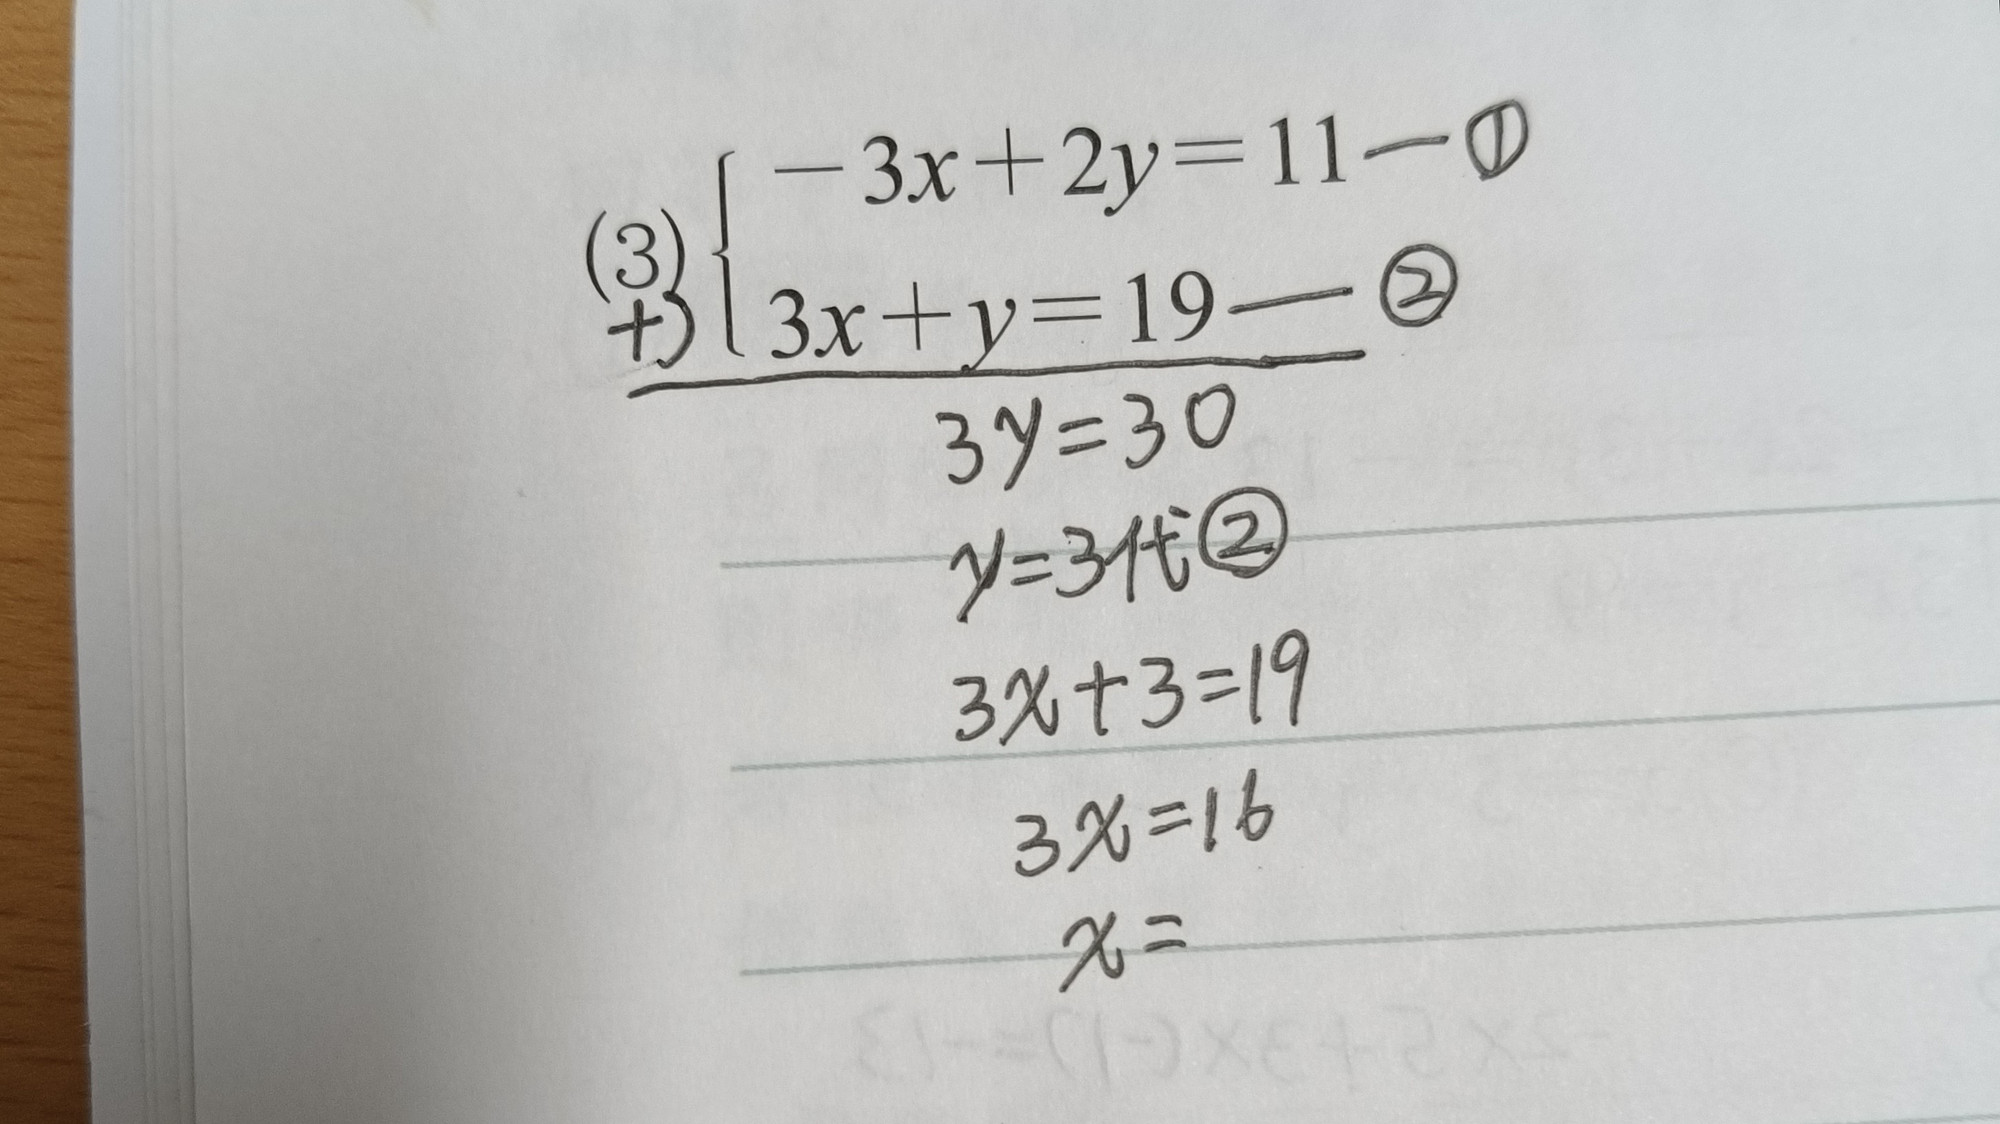 (3) { −3x+2y=11 — ①
+) 3x+y=19 — ②
3y=30
y=3代②
3x+3=19
3x=16
x=